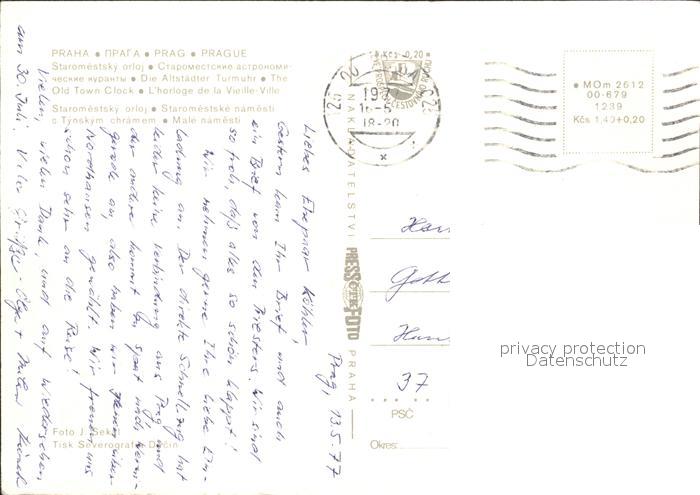 PRAHA • ПРАГА • PRAG • PRAGUE
Staroměstský orloj • Староместские астрономи-
ческие куранты • Die Altstädter Turmuhr • The
Old Town Clock • L'horloge de la Vieille-Ville
Staroměstský orloj • Staroměstské náměstí
s Týnským chrámem • Malé náměstí
Prag, 13.5.77
Liebes Ehepaar Köhler,
Gestern kam Ihr Brief und auch
ein Brief von den Triestens. Wir sind
so froh, daß alles so schön klappt!
Wir nehmen gerne Ihre liebe Ein-
ladung an. Der direkte Schnellzug hat
leider keine Verbindung aus Prag, und
der andere kommt zu spät nach
gerade an, also haben wir
Nordhausen gewählt. Wir freuen uns
schon sehr an die Reise!
Vielen, vielen Dank, und auf Wiedersehen
am 30. Juli. Viele Grüße Olga + Milan
Foto J. Sekal
Tisk Severografie Děčín
NAKLADATELSTVÍ
PRESS
FOTO
PRAHA
16-5
18-20
• MOm 2612
00-679
1239
Kčs 1,40+0,20
Goth
37
PSČ
Okres:
privacy protection
Datenschutz